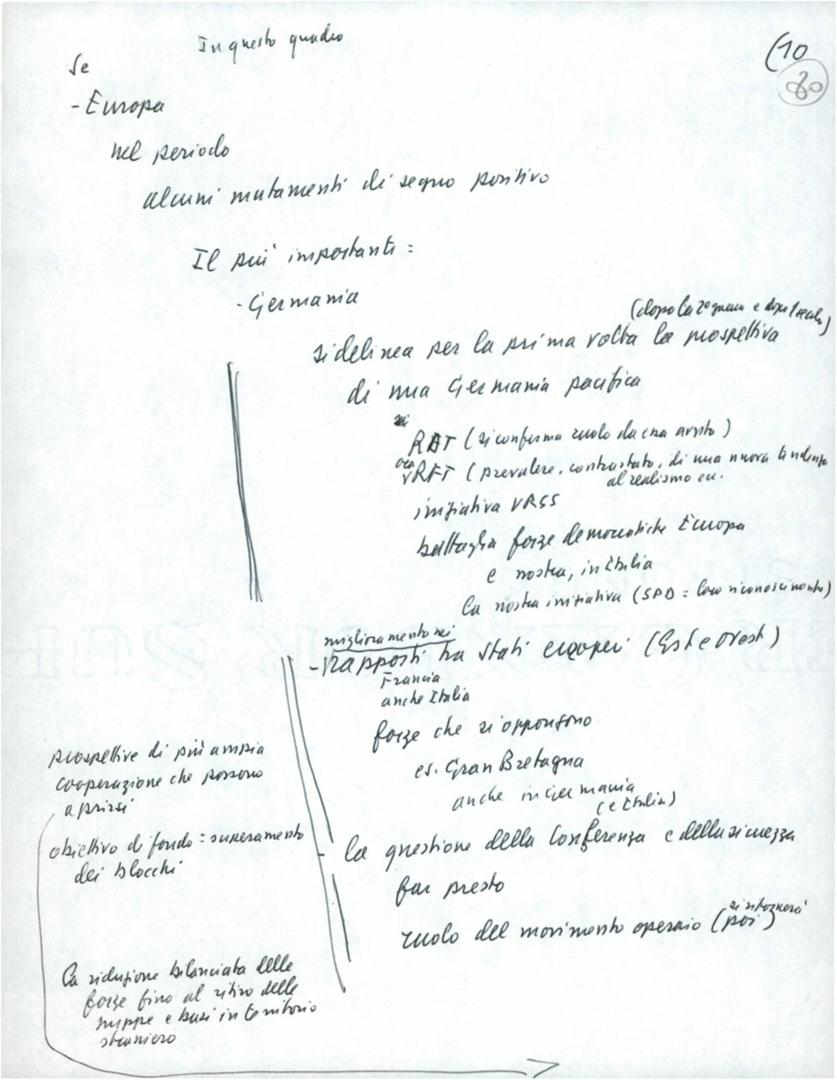 In questo quadro
(10
80
Se
- Europa
nel periodo
alcuni mutamenti di segno positivo
Il più importante :
- Germania
(dopo la 2a guerra e dopo
si delinea per la prima volta la prospettiva
di una Germania pacifica
RDT (si conferma ruolo da essa avuto)
RFT (prevalere, contrastato, di una nuova tendenza
al realismo ecc.
iniziativa URSS
battaglia forze democratiche Europa
e nostra, in Italia
la nostra iniziativa (SPD = loro riconoscimento)
miglioramento nei
- rapporti tra stati europei (Est e Ovest)
Francia
anche Italia
forze che si oppongono
es. Gran Bretagna
anche in Germania
(e Italia)
prospettive di più ampia
cooperazione che possono
aprirsi
obiettivo di fondo = superamento
dei blocchi
- la questione della Conferenza e della sicurezza
far presto
ruolo del movimento operaio (poi)
si ritornerà
La riduzione bilanciata delle
forze fino al ritiro delle
truppe e basi in territorio
straniero